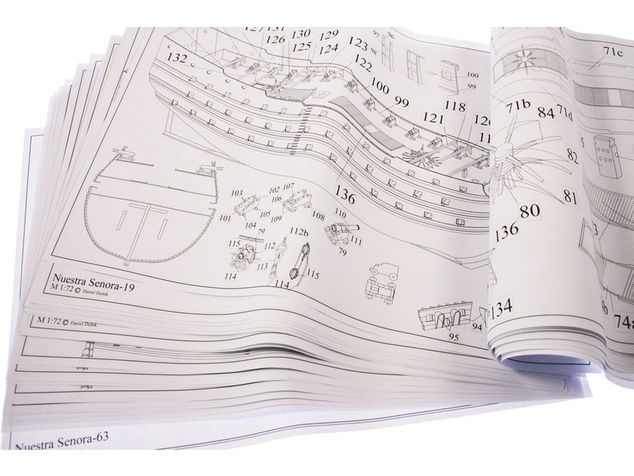 127 131
126 130 129
125 124 123
132
122
100 99
118
121
120
136
93
96
98
100
99
71c
71b 84 71d
82
81
80
136
134
103 102 107
106
101 105
104 109 108
79
110
111
79
115 112 112b
113
114 114 115
94
95
74a
Nuestra Senora-19
M 1:72 ©
M 1:72 ©
Nuestra Senora-63